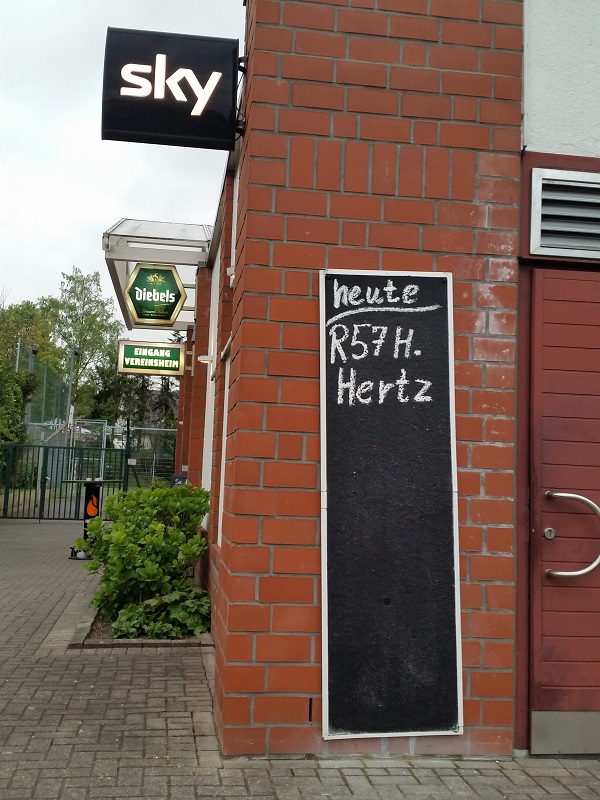 sky
Diebels
EINGANG
VEREINSHEIM
heute
R57 H.
Hertz